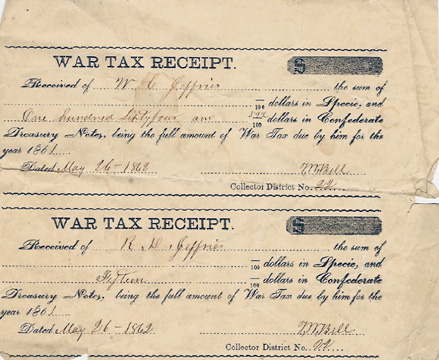 WAR TAX RECEIPT.
Received of W. H. Jeffries the sum of
/100 dollars in Specie, and
One hundred sixty four and /100 dollars in Confederate
Treasury Notes, being the full amount of War Tax due by him for the
year 1861
Dated May 26 - 1862
Collector District No.
WAR TAX RECEIPT.
Received of R. M. Jeffries the sum of
/100 dollars in Specie, and
Fifteen /100 dollars in Confederate
Treasury Notes, being the full amount of War Tax due by him for the
year 1861
Dated May 26 - 1862
Collector District No.